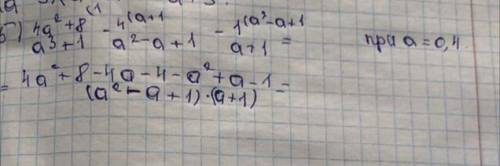 б) 4a²+8 / a³+1 - 4^(a+1 / a²-a+1 - 1^(a²-a+1 / a+1 = при a=0,4
= 4a²+8-4a-4-a²+a-1 / (a²-a+1)·(a+1) =